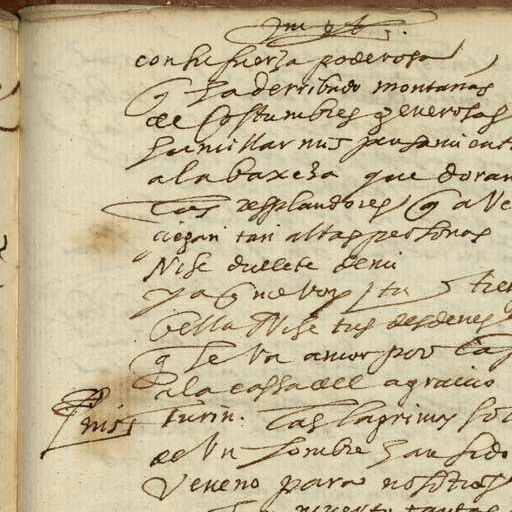 con su fuerza poderosa
q ha derribado montañas
de costumbres generosas
humillar mis pensamient
a la baxeza que doran
tas resplandores q a ve
ciegan tan altas personas
Nise duelete de mi
ya q me voy
bella Nise tus desdenes
q se va amor por las
a la cassa del agravio
turin. las lagrimas so
nise
de un hombre han sido
veneno para nosotros